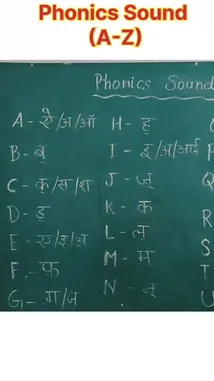 Phonics Sound
(A-Z)
Phonics Sound
A - ऐ/अ/ऑ
B - ब्
C - क्/स/श
D - ड्
E - ए/इ/अ
F - फ़
G - ग/ज
H - ह्
I - इ/अ/आई
J - ज्
K - क
L - ल
M - म्
N - न्
R
S
T
U